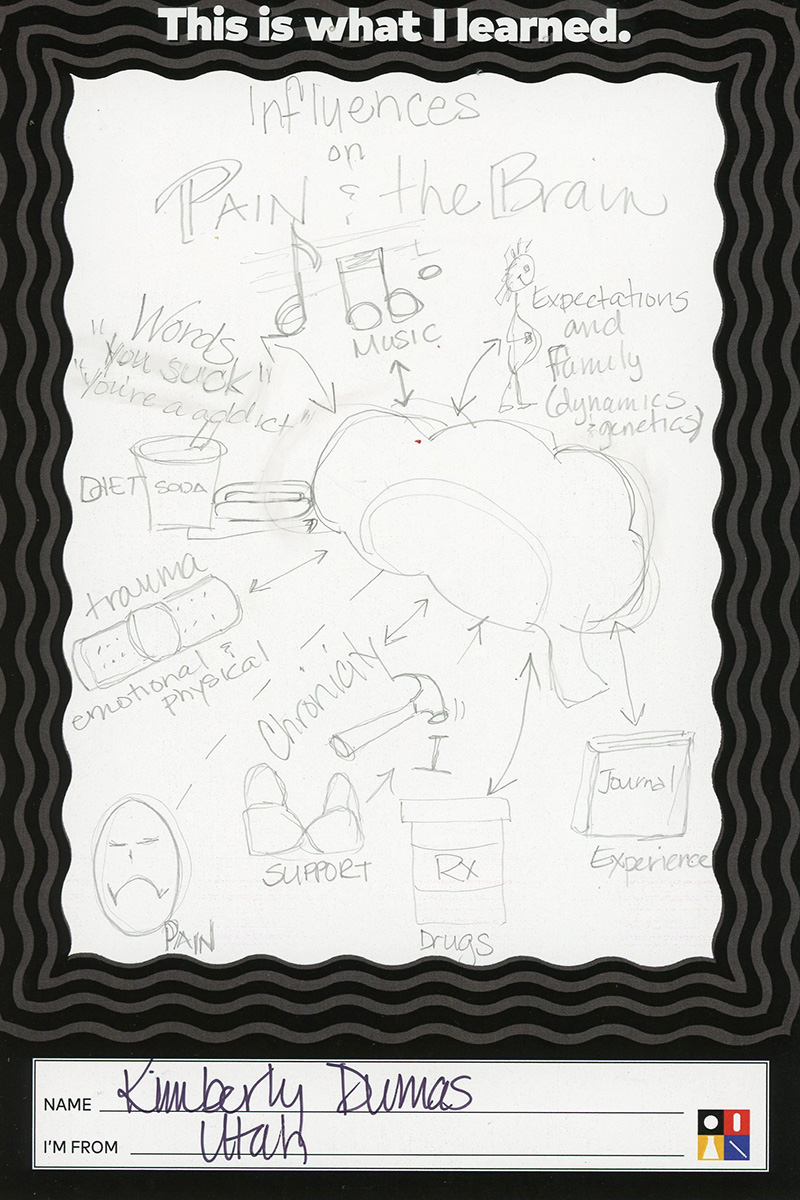 This is what I learned.
Influences
on
PAIN & the Brain
MUSIC
Words
"You suck"
"You're a addict"
Expectations
and
Family
(dynamics
& genetics)
DIET SODA
trauma
emotional &
physical
Chronicity
PAIN
SUPPORT
Rx
Drugs
Journal
Experience
NAME Kimberly Dumas
I'M FROM Utah